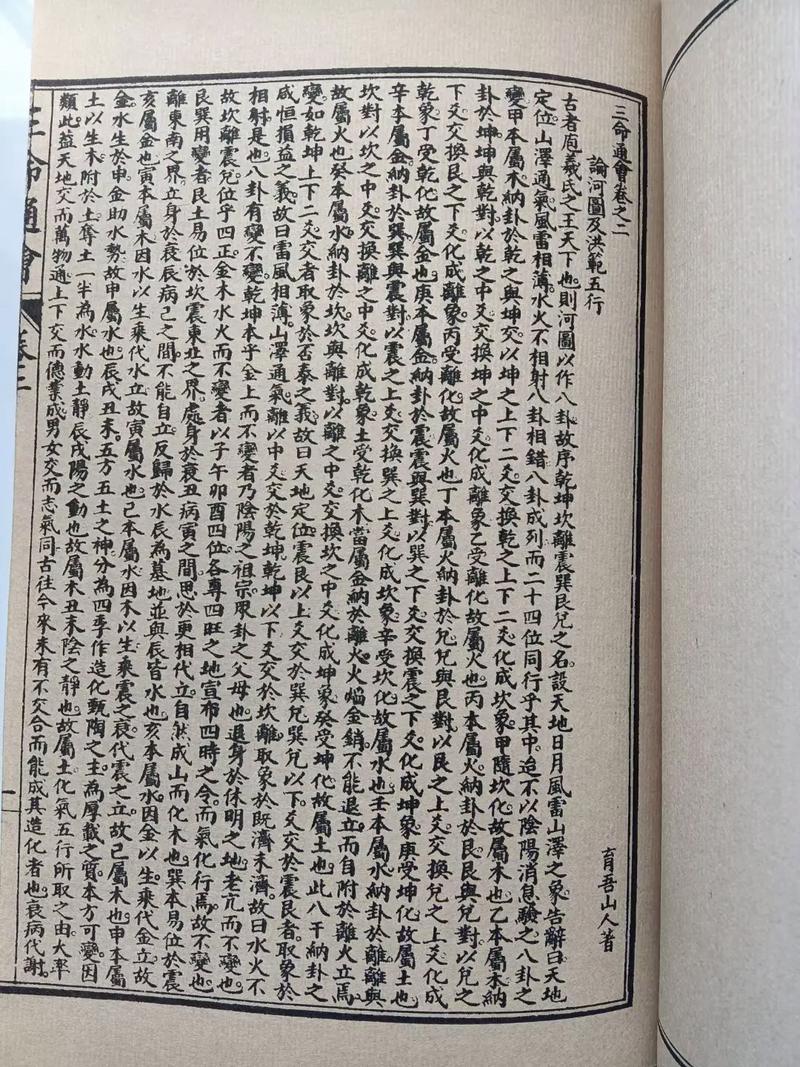 三命通會卷之二
育吾山人著
論河圖及洪範五行
古者庖羲氏之王天下也則河圖以作八卦故序乾坤坎離震巽艮兌之名設天地日月風雷山澤之象告辭曰天地
定位山澤通氣風雷相薄水火不相射八卦相錯八卦成列而二十四位同行乎其中迨不以陰陽消息驗之八卦之
變甲本屬木納卦於乾之與坤交以坤之上下二爻交換乾之上下二爻化成坎象甲隨坎化故屬木也乙本屬木納
卦於坤坤與乾對以乾之中爻交換坤之中爻化成離象乙受離化故屬火也丙本屬火納卦於艮艮與兌對以兌之
下爻交換艮之下爻化成離象丙受離化故屬火也丁本屬火納卦於兌兌與艮對以艮之上爻交換兌之上爻化成
乾象丁受乾化故屬金也庚本屬金納卦於震震與巽對以巽之下爻交換震之下爻化成坤象庚受坤化故屬土也
辛本屬金納卦於巽巽與震對以震之上爻交換巽之上爻化成坎象辛受坎化故屬水也壬本屬水納卦於離離與
坎對以坎之中爻交換離之中爻化成乾象土受乾化木當屬金納於離火火焰金銷不能退立而自附於離火立焉
故屬火也癸本屬水納卦於坎坎與離對以離之中爻交換坎之中爻化成坤象癸受坤化故屬土也此八干納卦之
變如乾坤上下二爻交者取象於否泰之義故曰天地定位震艮以上爻交於巽兌巽兌以下爻交於震艮者取象於
咸恒損益之義故曰雷風相薄山澤通氣離以中爻交於乾坤以下爻交於坎離取象於既濟未濟故曰水火不
相射是也八卦有變不變乾坤本乎金上而不變者乃陰陽之祖宗眾卦之父母也退身於休明之地老亢而不變也
故坎離震兌位乎四正金木水火而不變者以子午卯酉四位各專四旺之地宣布四時之令而氣化行焉故不變也
艮巽用變者艮土易位於坎震東北之界處身於衰丑病寅之間思於更相代立自然成山而化木也巽本易位於震
離東南之界立身於衰辰病己之間不能自立反歸於水辰為墓地並與辰皆水也亥本屬水因金以生乘代金立故
亥屬金也寅本屬木因水以生乘代水立故寅屬水也己本屬水因木以生乘震之衰代震之立故己屬木也申本屬
金水生於申金助水勢故申屬水也辰戌丑未五方五土之神分為四季作造化甄陶之主為厚載之質本方可變因
土以生木附於土奪土一半為水水動土靜辰戌陽之動也故屬木丑未陰之靜也故屬土化氣五行所取之由大率
類此蓋天地交而萬物通上下交而德業成男女交而志氣同古往今來未有不交合而能成其造化者也衰病代謝
三命通會
卷二
一